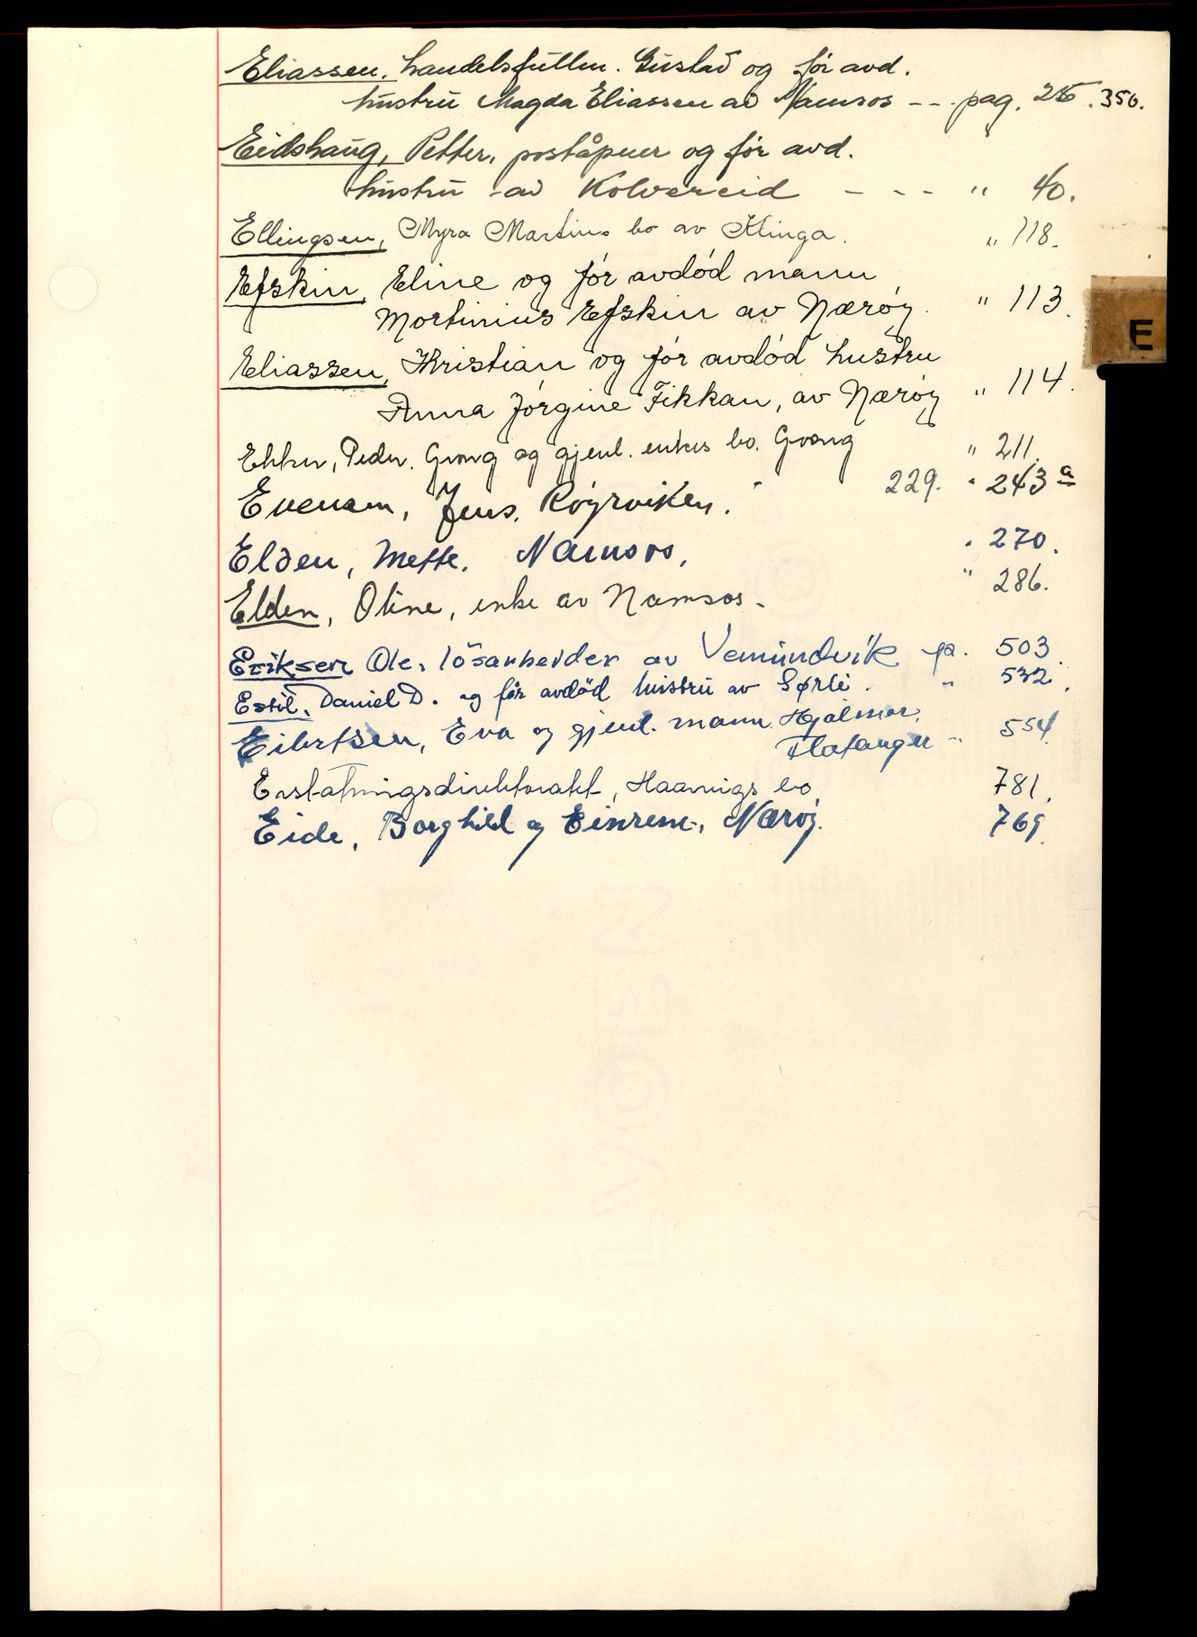 Eliassen, handelsfullm. Gustav og før avd.
hustru Magda Eliassen av Namsos -- pag. 25. 350.
Eidshaug, Petter, poståpner og før avd.
hustru av Kolvereid - - - " 40.
Ellingsen, Myra Martins bo av Klinga. " 118.
Efskin, Eline og før avdød mann
Mortinius Efskin av Nærøy. " 113.
E
Eliassen, Kristian og før avdød hustru
Anna Jørgine Fikkan, av Nærøy " 114.
Ekker, Peder. Grong og gjenl. enkes bo. Grong " 211.
Evenam, Jens. Røyrviken. 229. " 243 a
Elden, Mette. Namsos. " 270.
Elden, Oline, enke av Namsos. " 286.
Eriksen Ole, løsarbeider av Vemundvik pa. 503.
Estil, Daniel D. og før avdød hustru av Sørli. " 532.
Eilertsen, Eva og gjenl. mann Hjalmar,
Flatanger " 554.
Erstatningsdirektoratet, Haarnigs bo 781.
Eide, Borghild og Einrem, Nærøy. 769.